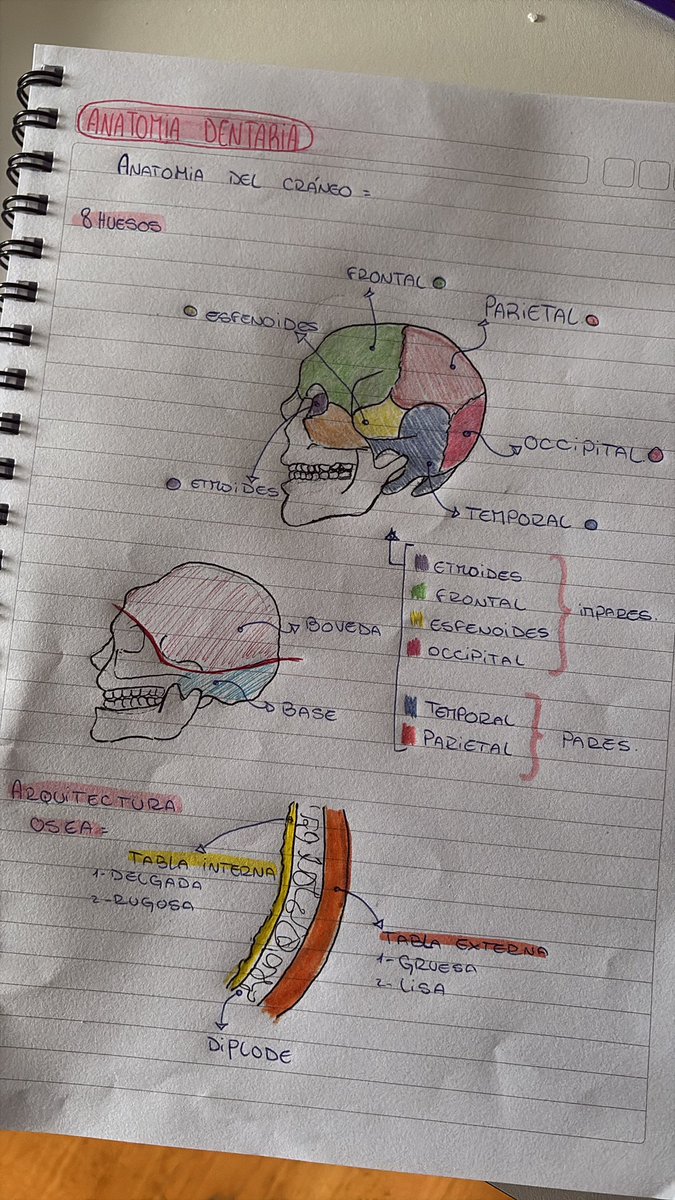 ANATOMIA DENTARIA
ANATOMIA DEL CRÁNEO =
8 HUESOS
FRONTAL
ESFENOIDES
PARIETAL
OCCIPITAL
ETMOIDES
TEMPORAL
ETMOIDES
FRONTAL
ESFENOIDES
OCCIPITAL
IMPARES.
TEMPORAL
PARIETAL
PARES.
BOVEDA
BASE
ARQUITECTURA
OSEA =
TABLA INTERNA
1- DELGADA
2- RUGOSA
TABLA EXTERNA
1- GRUESA
2- LISA
DIPLODE